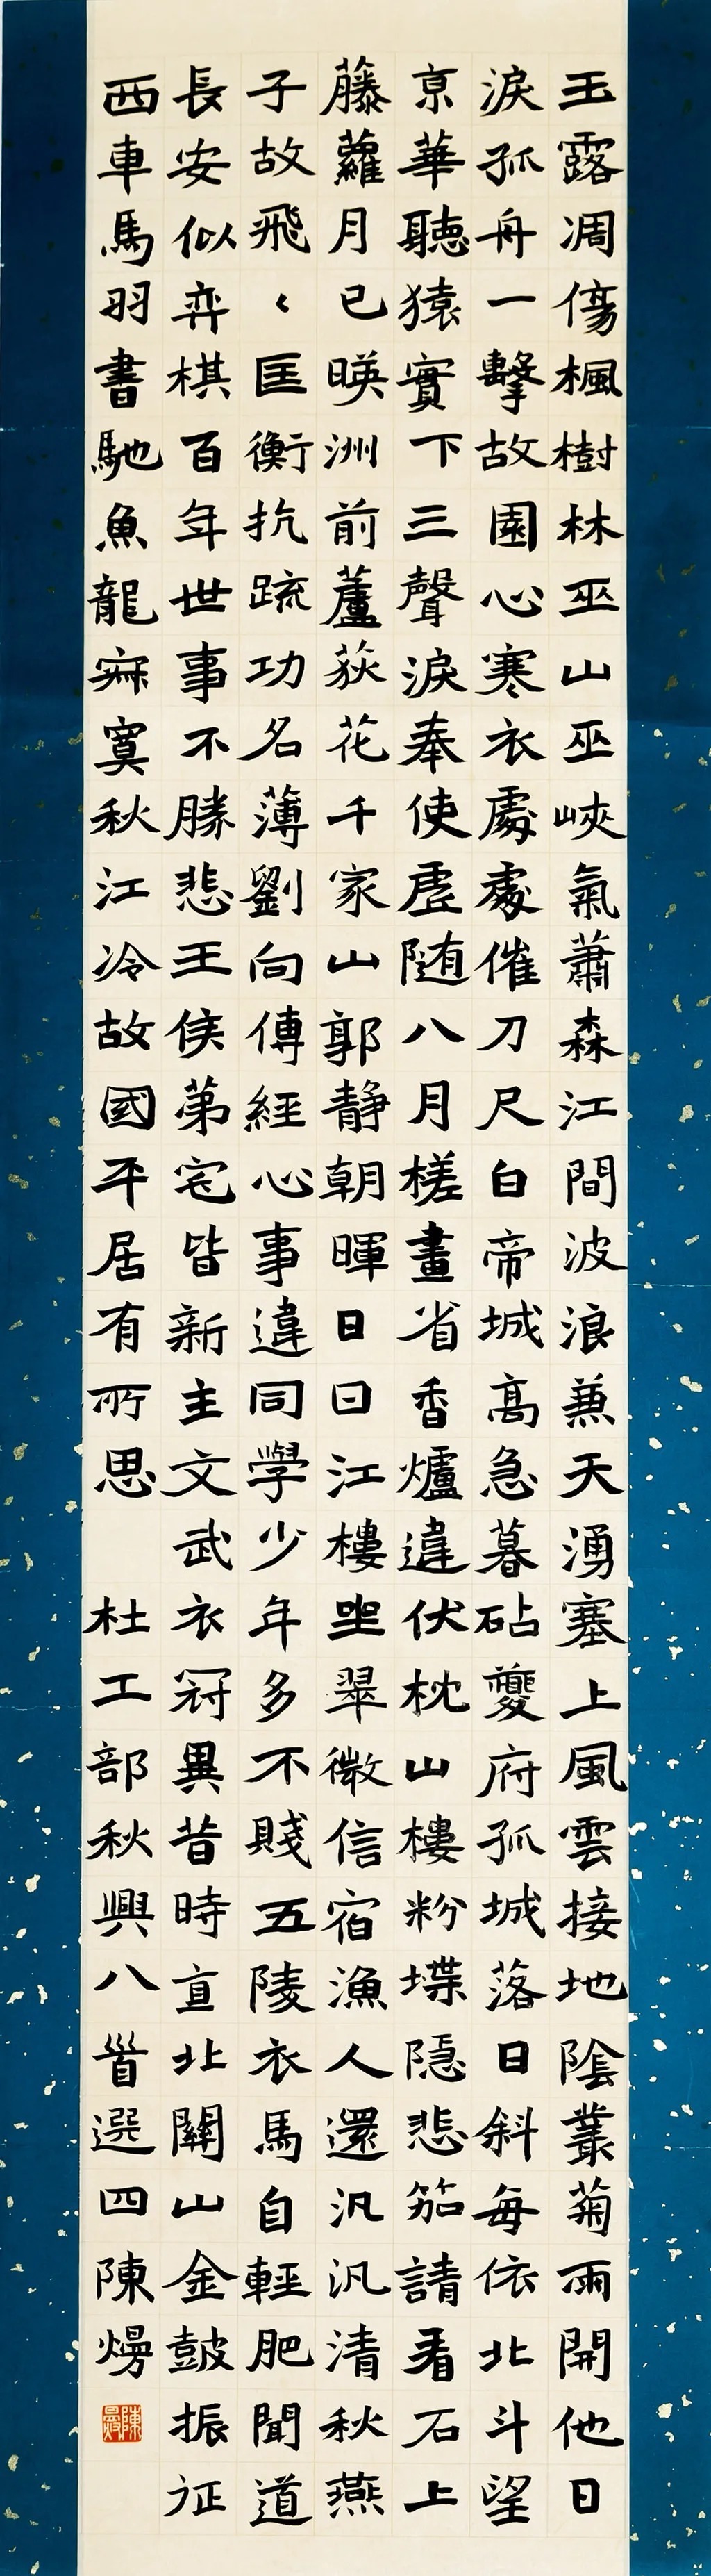 玉露凋傷楓樹林巫山巫峽氣蕭森江間波浪兼天湧塞上風雲接地陰叢菊兩開他日
淚孤舟一擊故園心寒衣處處催刀尺白帝城高急暮砧夔府孤城落日斜每依北斗望
京華聽猿實下三聲淚奉使虛随八月槎畫省香爐違伏枕山樓粉堞隱悲笳請看石上
藤蘿月已暎洲前蘆荻花千家山郭静朝暉日日江樓坐翠微信宿漁人還汎汎清秋燕
子故飛〻匡衡抗疏功名薄劉向傳經心事違同學少年多不賤五陵衣馬自輕肥聞道
長安似弈棋百年世事不勝悲王侯第宅皆新主文武衣冠異昔時直北關山金鼓振征
西車馬羽書馳魚龍寂寞秋江冷故國平居有所思 杜工部秋興八首選四陳熳